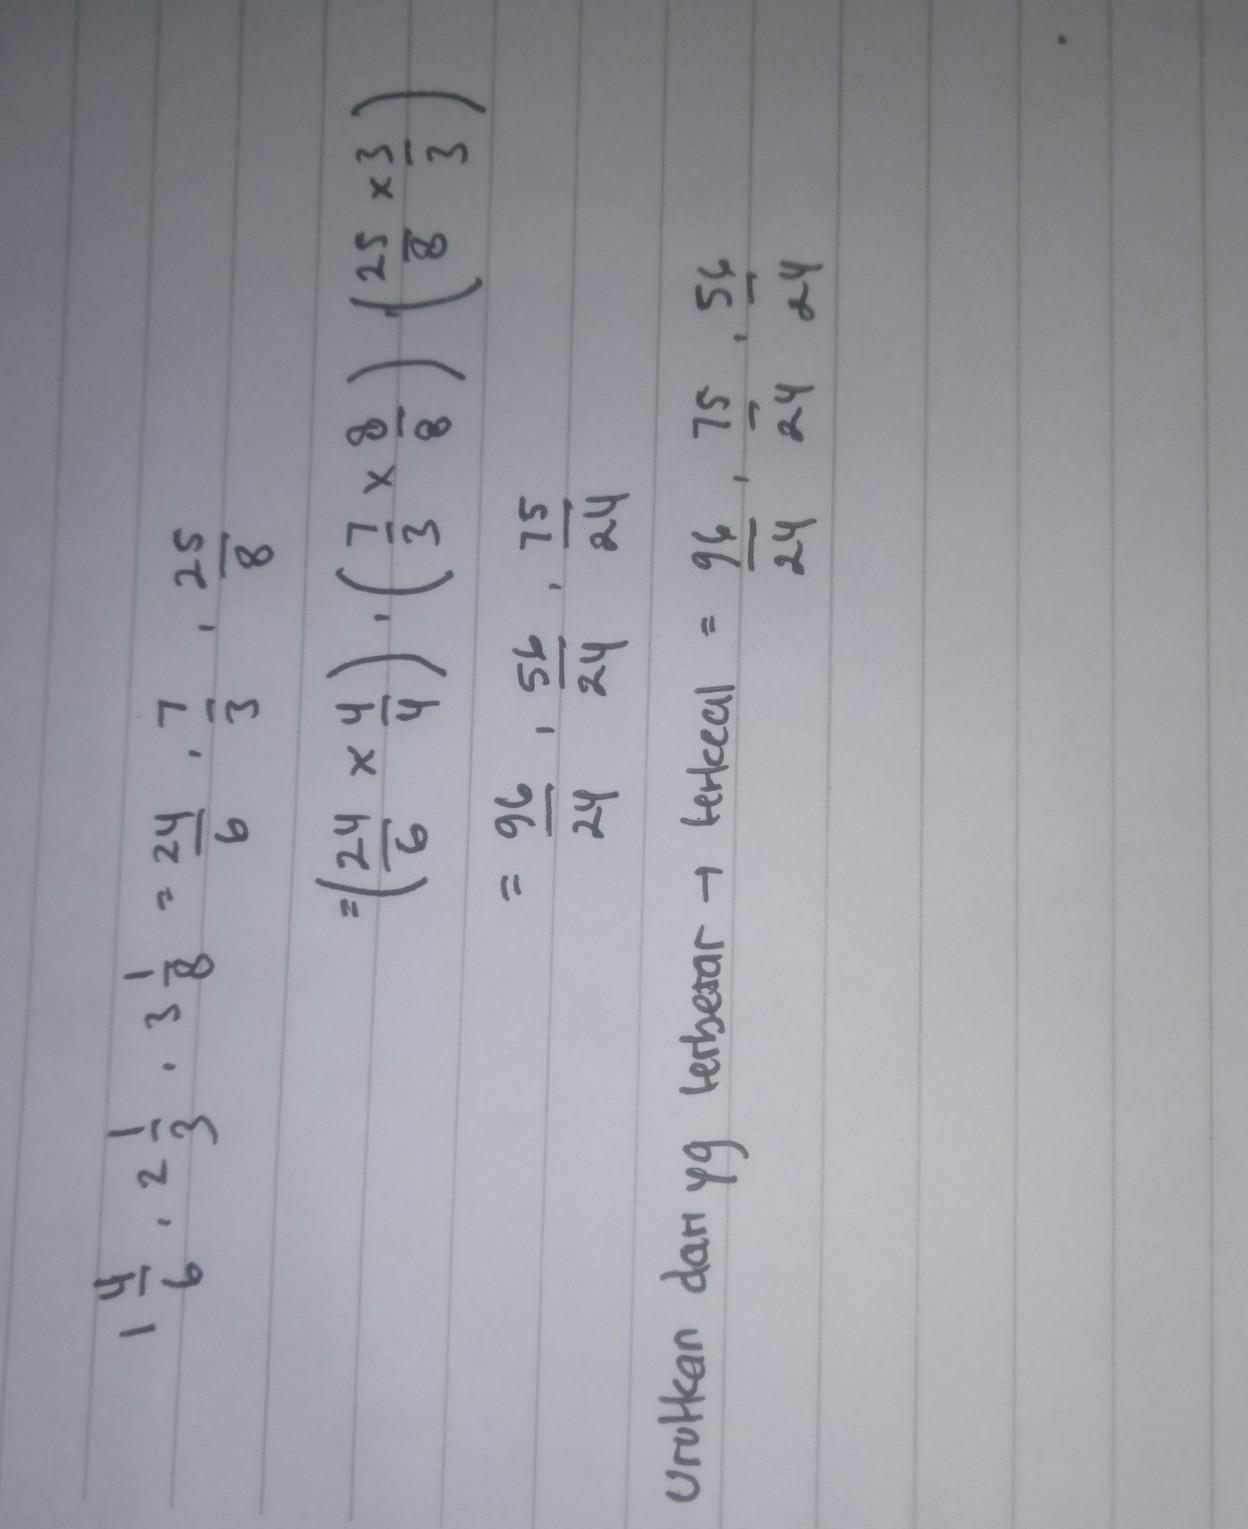 1 4/6 , 2 1/3 , 3 1/8 = 24/6 , 7/3 , 25/8
= (24/6 x 4/4) , (7/3 x 8/8) , (25/8 x 3/3)
= 96/24 , 56/24 , 75/24
Urutkan dari yg terbesar → terkecil = 96/24 , 75/24 , 56/24